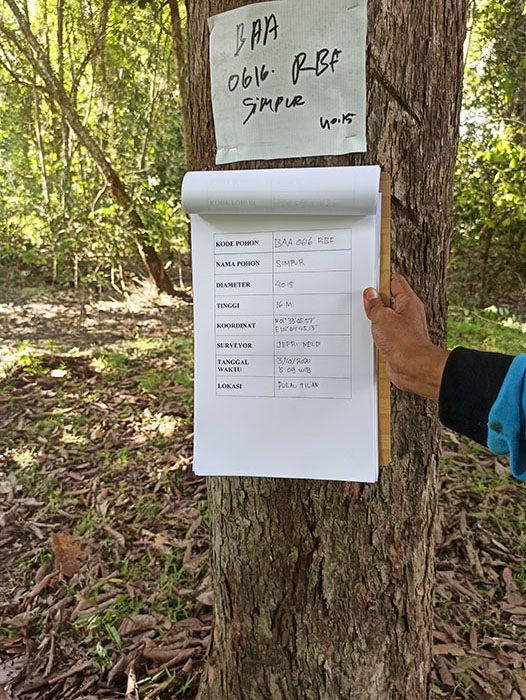 BAA
0616. RBF
SIMPUR
40.15
KODE POHON BAA 0616 RBF
NAMA POHON SIMPUR
DIAMETER 40.15
TINGGI 16 M
KOORDINAT
SURVEYOR JEFRI
TANGGAL
WAKTU WIB
LOKASI PULAU TILAN